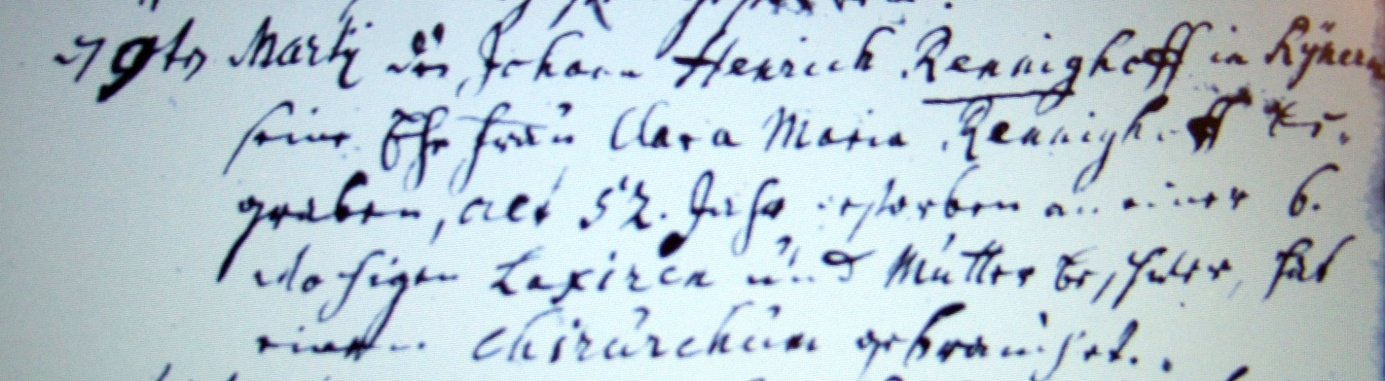 29ten Martij des Johann Henrich Rennighoff in Rÿnern
seine Ehe frau Clara Maria Rennighoff be-
graben, alt 52. Jahr gestorben an einer 6.
wochigen Laxiren und Mutter beschwer, hat
einen Chirurchum gebrauchet.